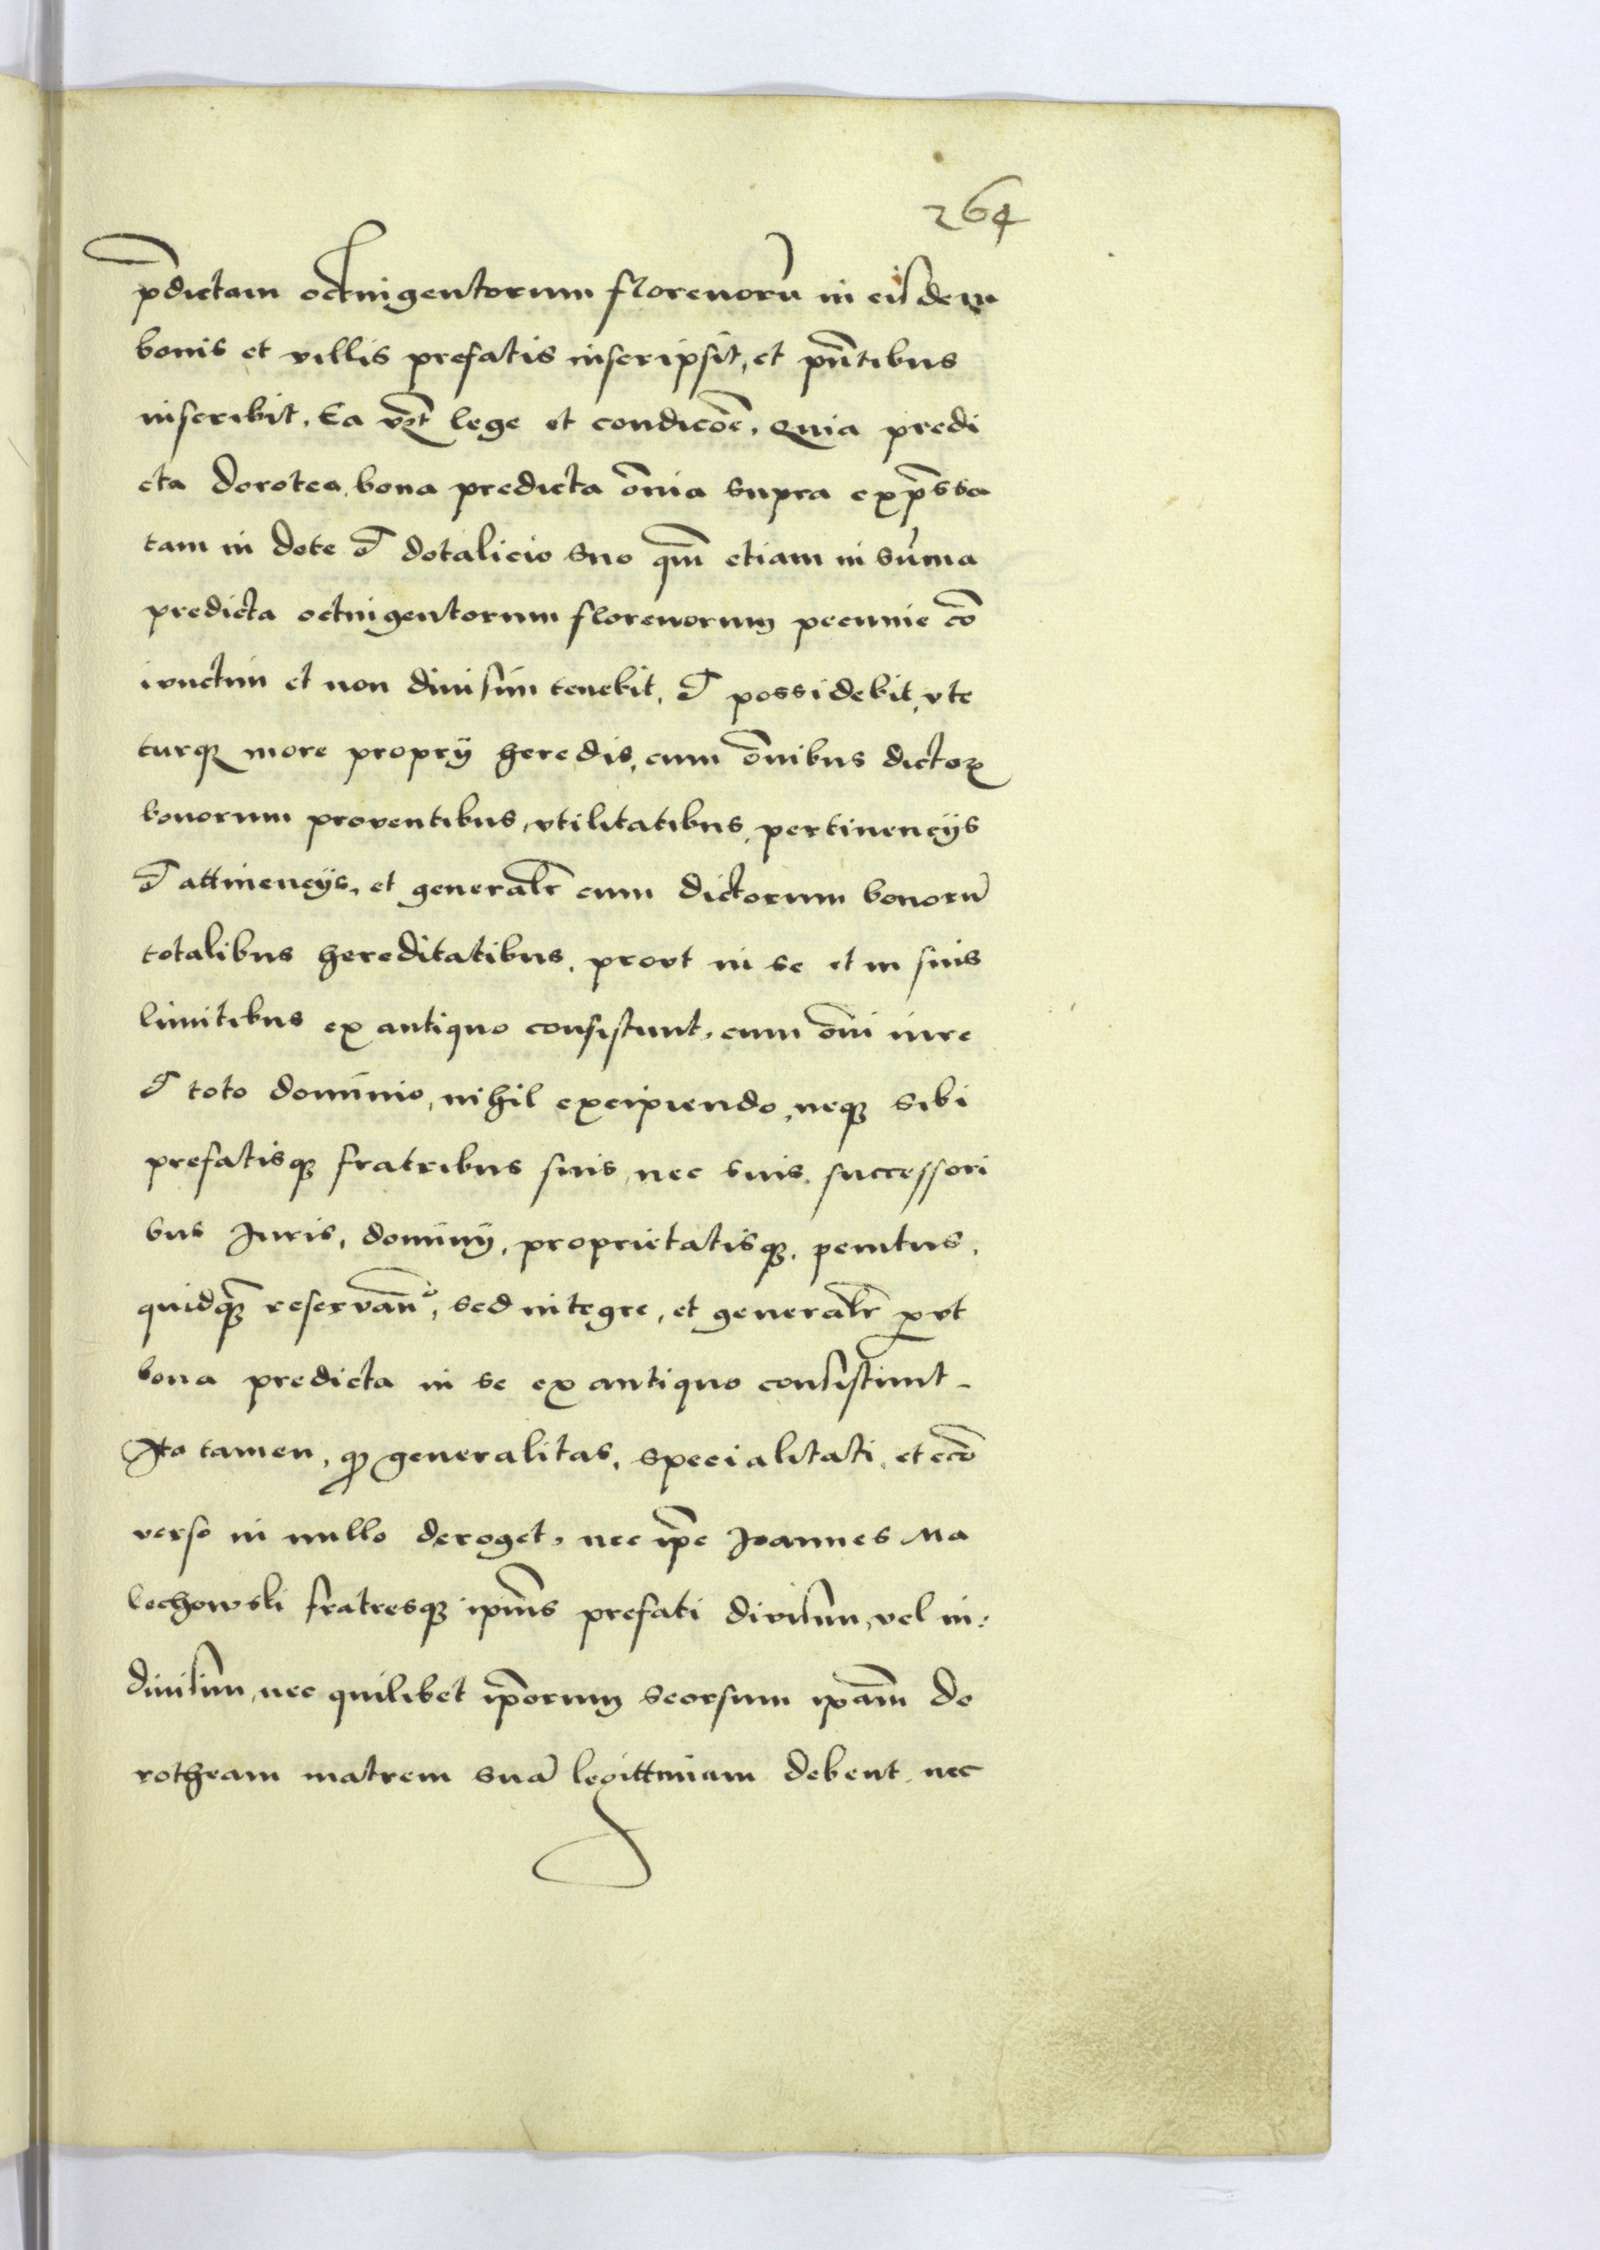 264
p̄dictam octuigentorum florenorū in eisdem
bonis et villis prefatis inscripsit, et pn̄tibus
inscribit. Ea vȝt lege et condicōe. Quia predi
cta dorotea, bona predicta om̄ia supra exp̄ssa
tam in dote et dotalicio suo qm̄ etiam in sūma
predicta octuigentorum florenorum pecunie cō
iunctim et non diuisim tenebit, et possidebit, vte
turqȝ more proprÿ heredis, cum om̄ibus dictoꝝ
bonorum proventibus, vtilitatibus, pertinencÿs
et attinencÿs, et generalr̄ cum dictorum bonorū
totalibus hereditatibus, provt in se et in suis
limitibus ex antiquo consistunt, cum om̄i iure
et toto dominio, nihil excipiendo, neqȝ sibi
prefatisqȝ fratribus suis, nec suis successori
bus Iuris, dominÿ, proprietatisqȝ penitus,
quidqȝ̄ reservan̄o, sed integre, et generalr̄ ꝓvt
bona predicta in se ex antiquo consistunt.
Ita tamen, qȝ generalitas, specialitati, et ecō
verso in nullo deroget, nec ip̄e Ioannes Ma
lechowski fratresqȝ ipīus prefati divisim, vel in:
diuisim, nec quilibet ip̄orum seorsum ip̄am do
rotheam matrem suā legittimam debent, nec